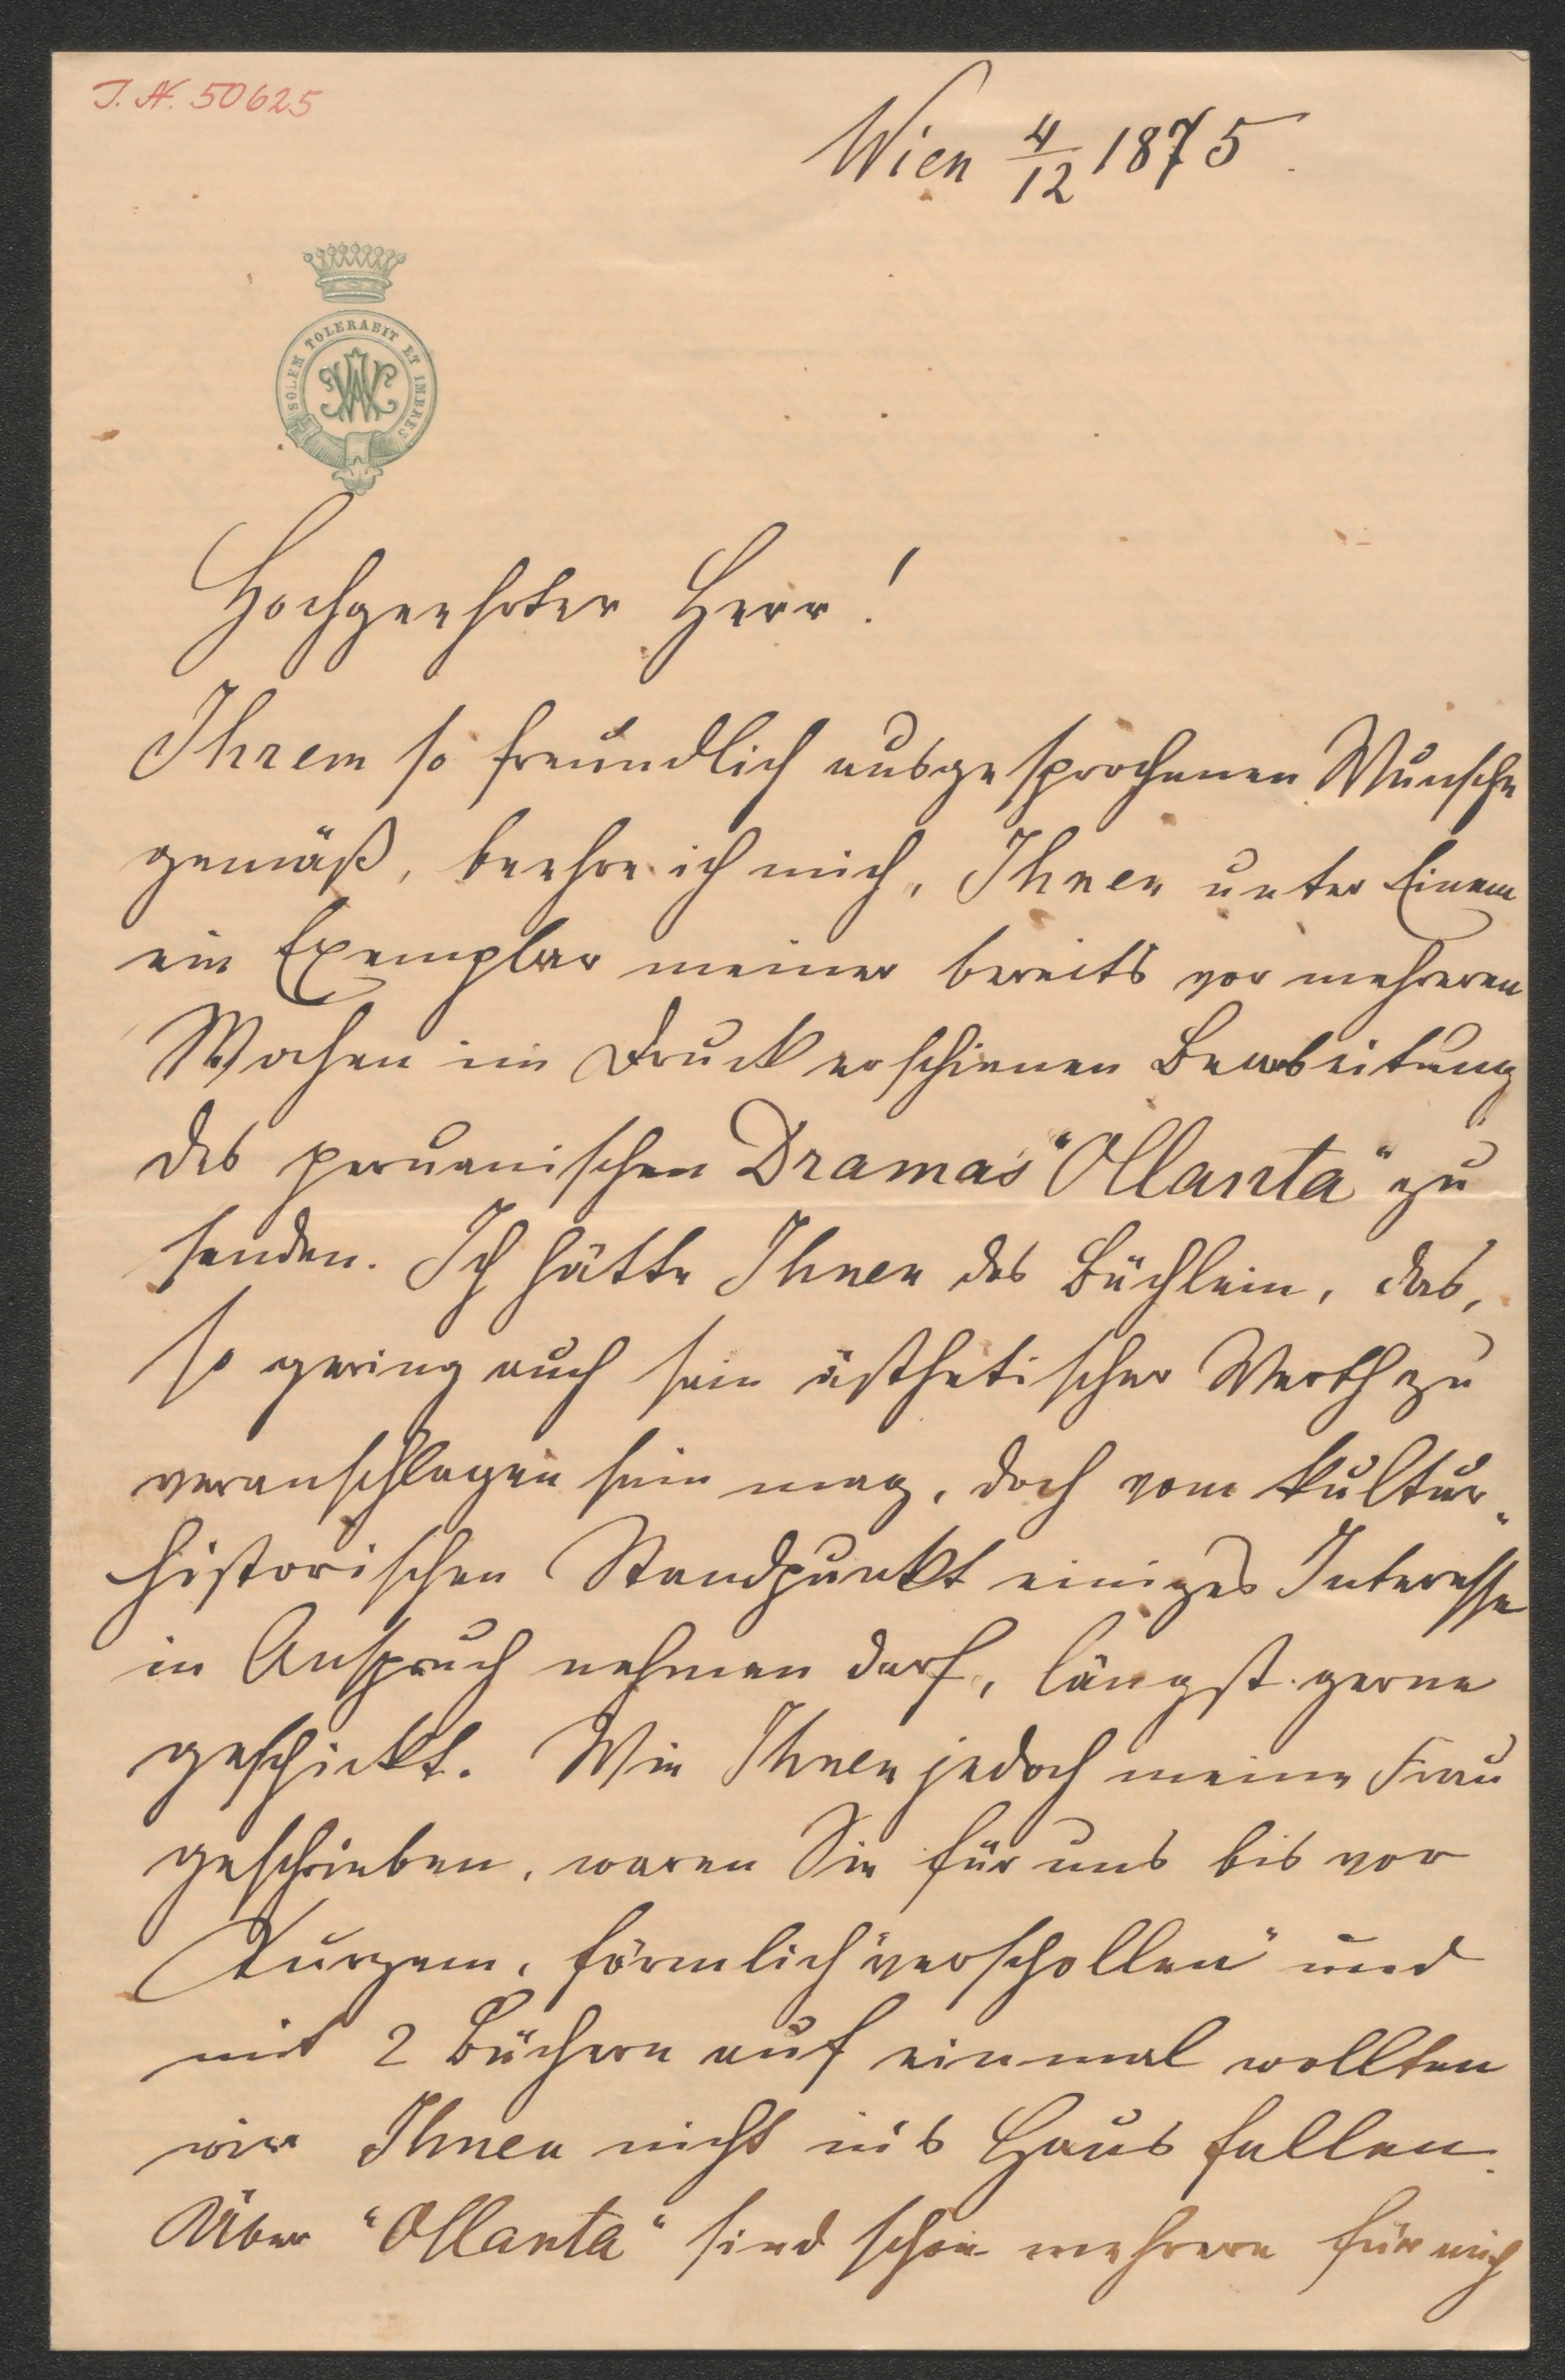 J. N. 50625
Wien 4/12 1875.
SOLEM TOLERABIT ET IMBRES
Hochgeehrter Herr!
Ihrem so freundlich ausgesprochenen Wunsche
gemäß, beehre ich mich, Ihnen unter Einem
ein Exemplar meiner bereits vor mehreren
Wochen im Druck erschienen Bearbeitung
des peruanischen Dramas "Ollanta" zu
senden. Ich hätte Ihnen das Büchlein, das,
so gering auch sein ästhetischer Werth zu
veranschlagen sein mag, doch vom kultur-
historischen Standpunkt einiges Interesse
in Anspruch nehmen darf, längst gerne
geschickt. Wie Ihnen jedoch meine Frau
geschrieben, waren Sie für uns bis vor
Kurzem, förmlich "verschollen" und
mit 2 Büchern auf einmal wollten
wir Ihnen nicht in's Haus fallen.
Über "Ollanta" sind schon mehrere für mich